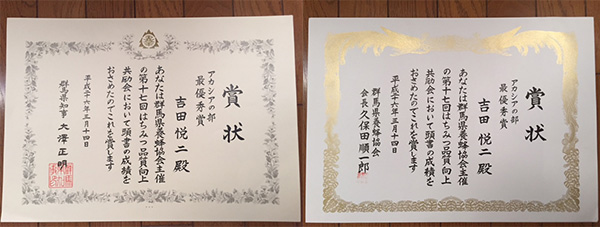 賞状
アカシアの部
最優秀賞
吉田悦二殿
あなたは群馬県養蜂協会主催
の第十七回はちみつ品質向上
共励会において頭書の成績を
おさめたのでこれを賞します
平成二十六年三月十四日
群馬県知事 大澤正明
賞状
アカシアの部
最優秀賞
吉田悦二殿
あなたは群馬県養蜂協会主催
の第十七回はちみつ品質向上
共励会において頭書の成績を
おさめたのでこれを賞します
平成二十六年三月十四日
群馬県養蜂協会
会長 久保田順一郎